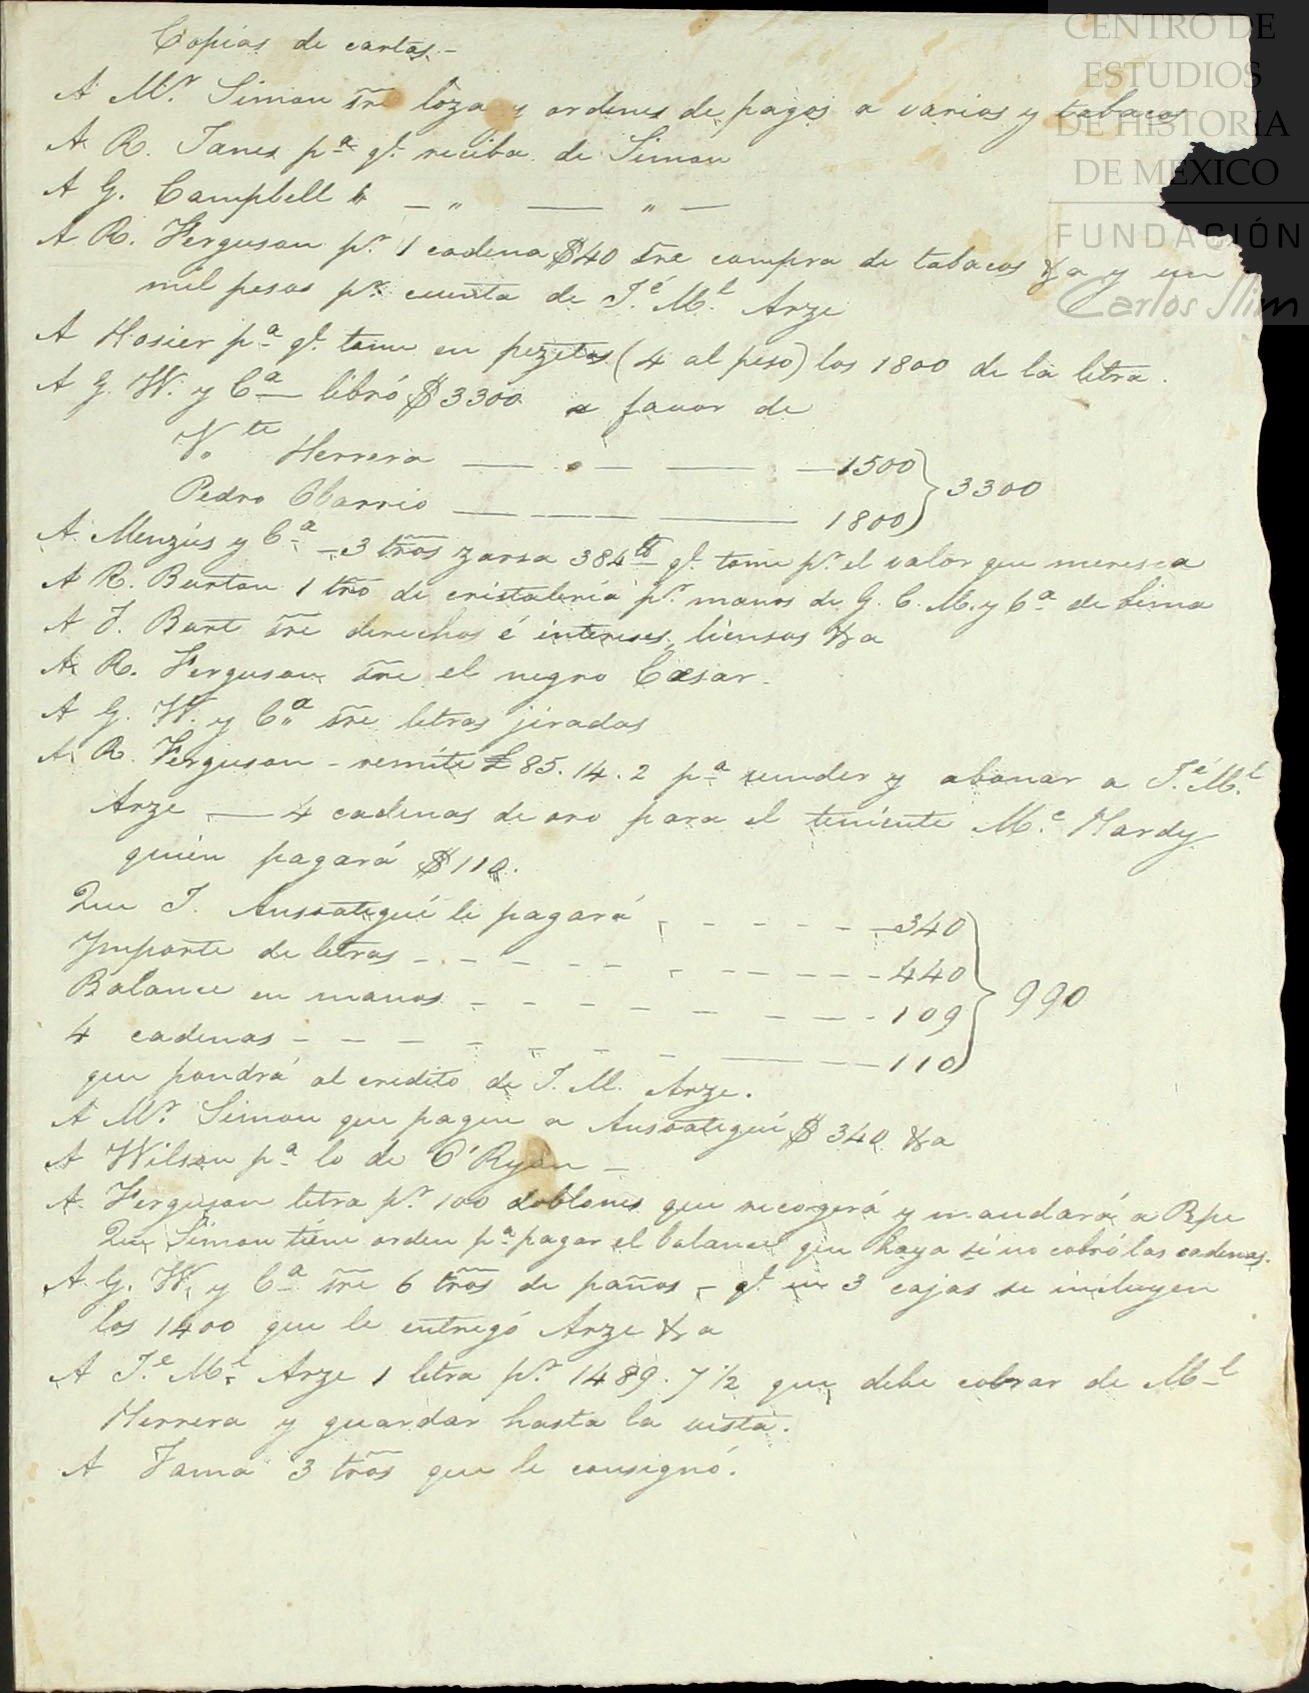 Copias de cartas.-
A Mr. Simon sre loza y ordenes de pagos a varios y tabacos
A R. Janes pa. q. reciba de Simon
A G. Campbell " — " — " —
A R. Ferguson pr. 1 cadena $40 sre compra de tabacos &a y un
mil pesos pr. cuenta de Je. Ml. Arze
A Hosier pa. q. tome en pezetas (4 al peso) los 1800 de la letra.
A G. W. y Ca — libró $3300 a favor de
Vte. Herrera — — — — 1500
Pedro Obarrio — — — 1800 } 3300
A Menzies y Ca. - 3 tros zarza 384 lb q. tome pr. el valor que meresca
A R. Burton 1 tro de cristalería pr. manos de G. C. M. y Ca. de Lima
A J. Bart sre derechos é intereses, liensos &a
A R. Ferguson sre el negro Cæsar.
A G. W. y Ca. sre letras jiradas
A R. Ferguson - remite £85.14.2 pa. vender y abonar a Je. Ml.
Arze — 4 cadenas de oro para el teniente Mc. Hardy
quien pagará $110.
Que J. Ansoategui le pagará - - - - - 340
Ymporte de letras - - - - - - - - - 440
Balance en manos - - - - - - - - 109
4 cadenas - - - - - - - — 110 } 990
que pondrá al credito de J. M. Arze.
A Mr. Simon que pague a Ansoategui $340 &a
A Wilson pa. lo de O'Ryan —
A Ferguson letra pr. 100 doblones que recogerá y mandará a Bpe
Que Simon tiene orden pa. pagar el balance que haya si no cobró las cadenas.
A G. W. y Ca. sre 6 tros de paños - q. en 3 cajas se incluyen
los 1400 que le entregó Arze &a
A Je. Ml. Arze 1 letra pr. 1489.7 1/2 que debe cobrar de Ml
Herrera y guardar hasta la vista.
A Jama 3 tros que le consignó.
CENTRO DE
ESTUDIOS
DE HISTORIA
DE MÉXICO
FUNDACIÓN
Carlos Slim